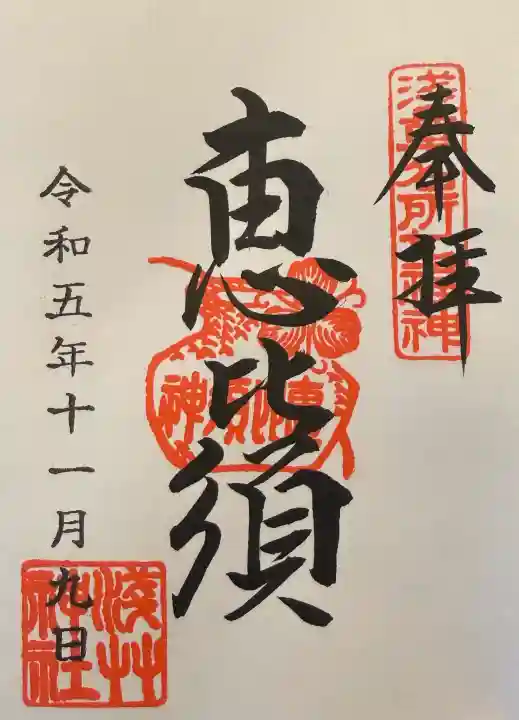 奉拝
浅草名所七福神
恵比須
恵比須神
令和五年十一月九日
浅草神社